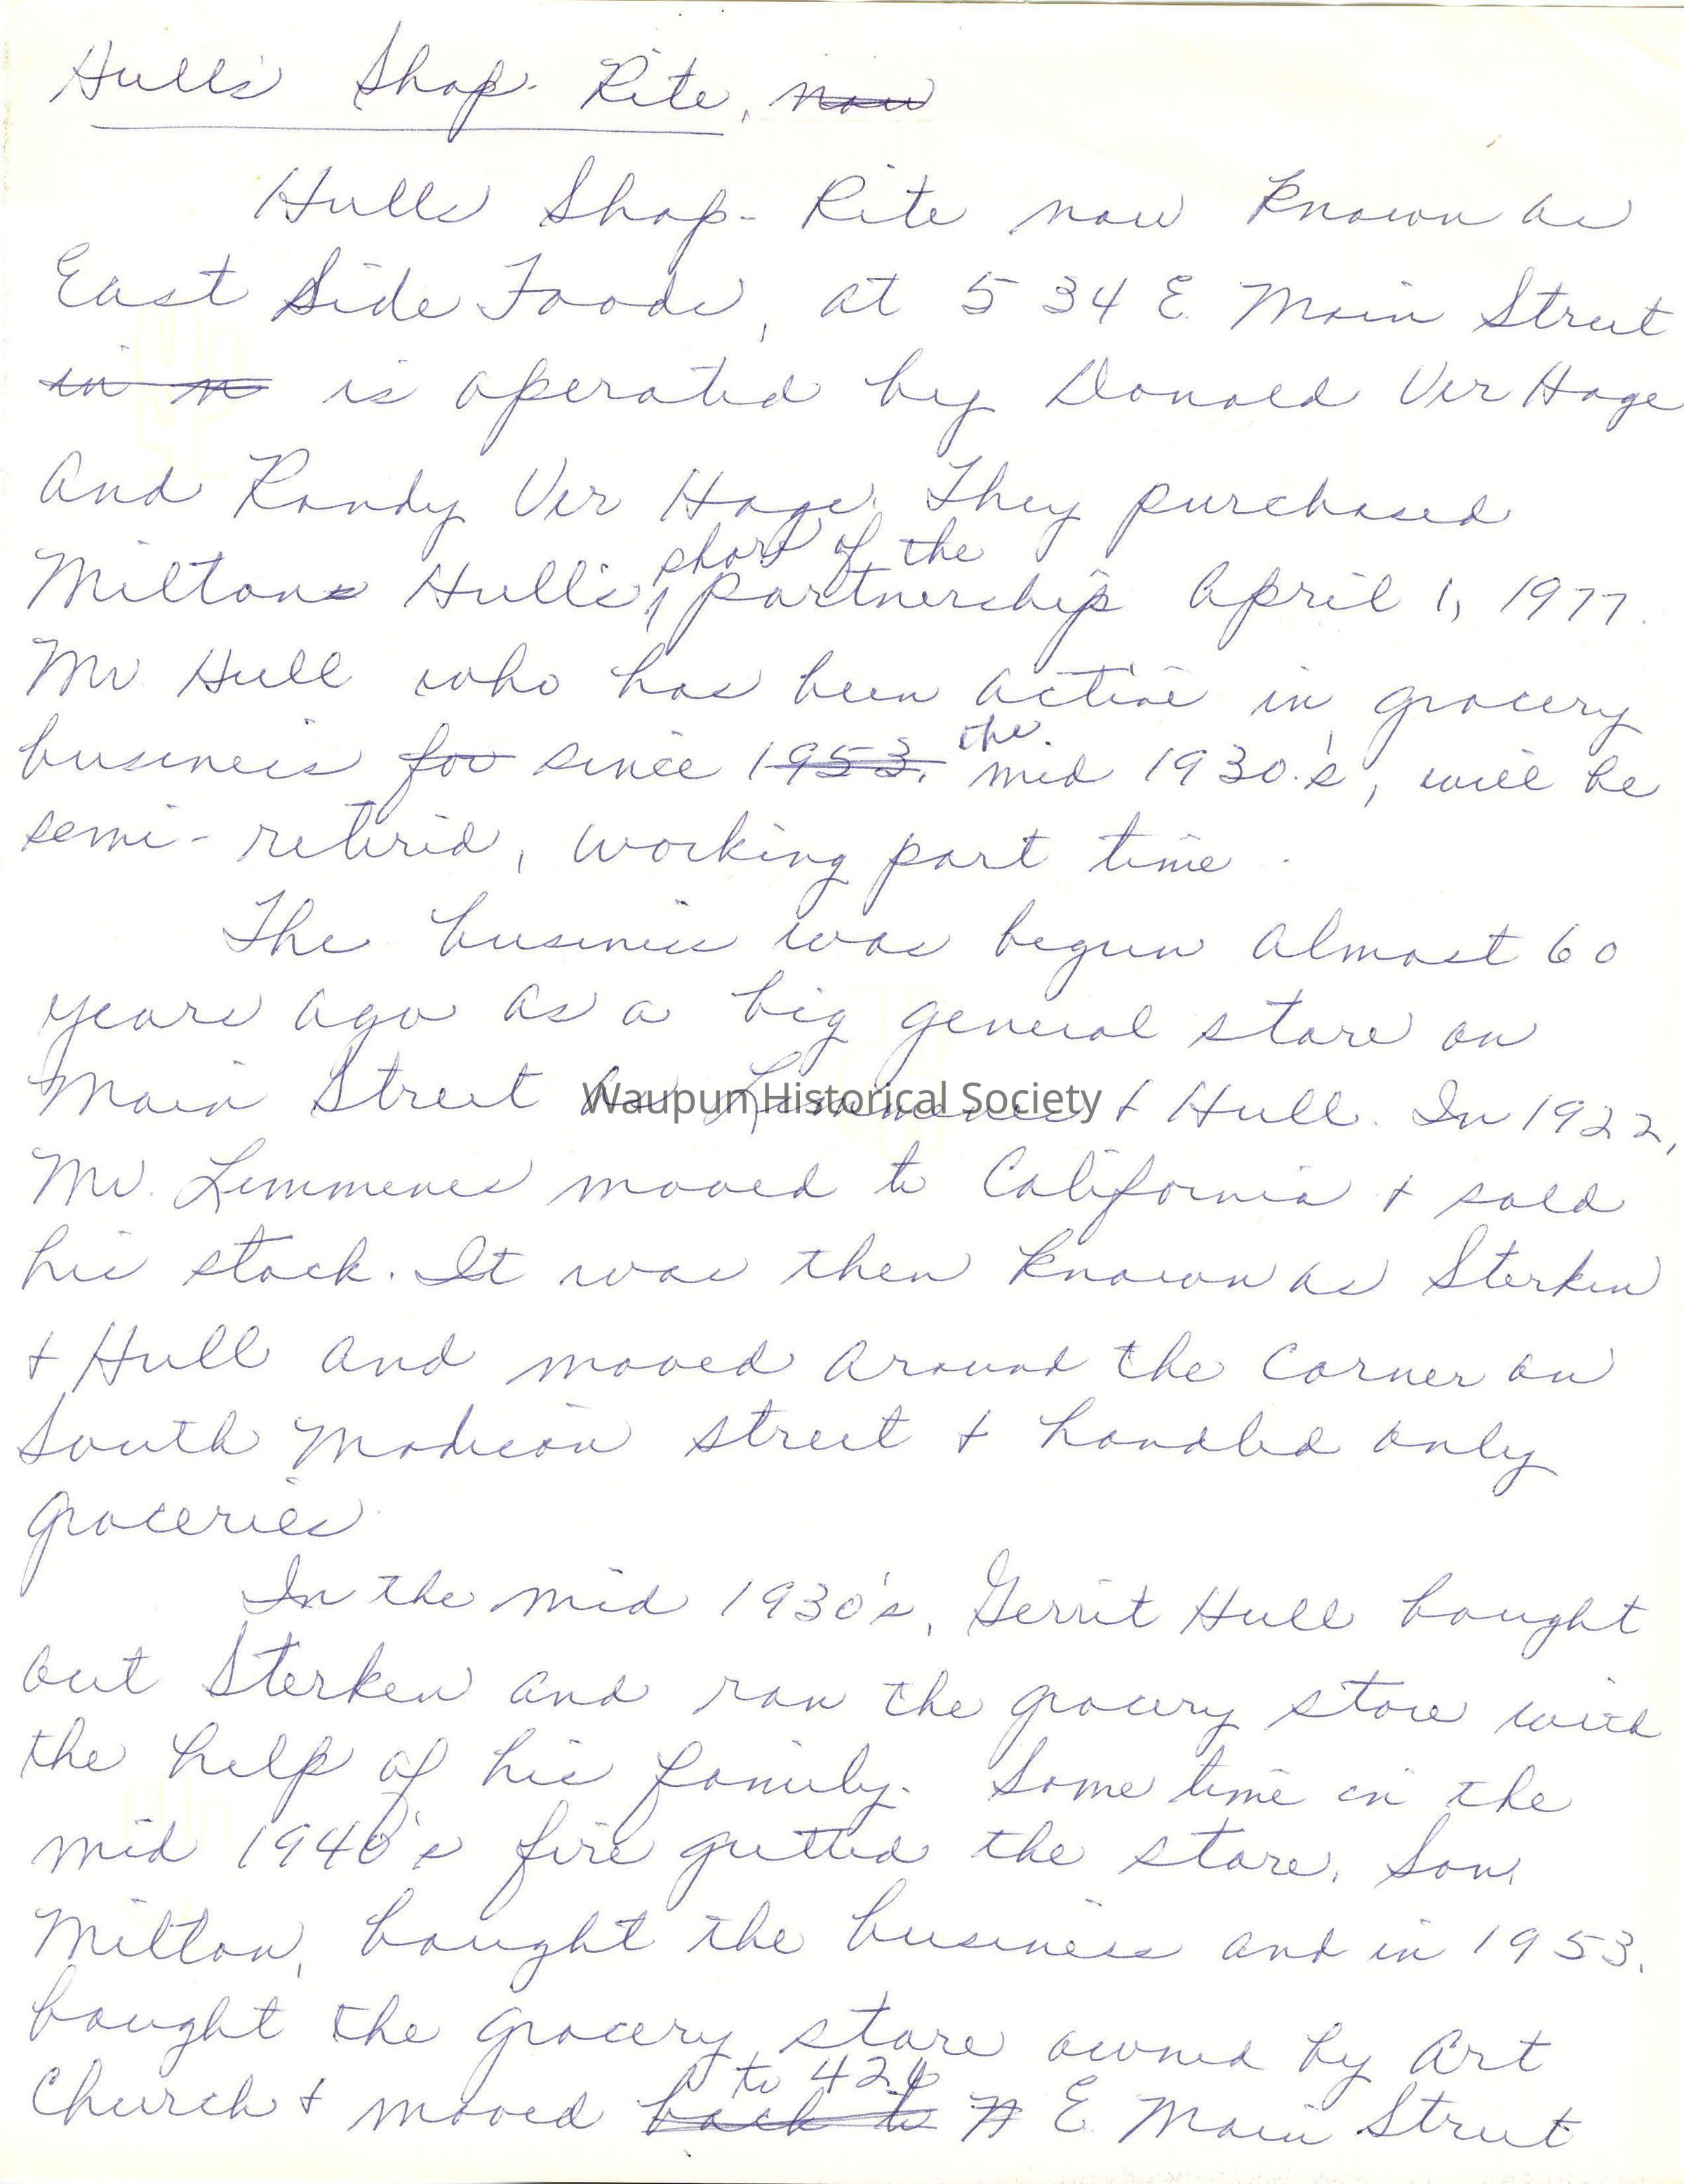 Hull's Shop-Rite, now
Hulls Shop-Rite now known as
East Side Foods, at 534 E. Main Street
in is operated by Donald Ver Hage
and Randy Ver Hage. They purchased
share of the
Miltons Hull's partnership April 1, 1977.
Mr Hull who has been active in grocery
the
business for since 1953. mid 1930's, will be
semi-retired, working part time.
The business was begun almost 60
years ago as a big general store on
Main Street as Lemmenes + Hull. In 1922,
Waupun Historical Society
Mr. Lemmenes moved to California + sold
his stock. It was then known as Sterken
+ Hull and moved around the corner on
South Madison street + handled only
groceries
In the mid 1930's, Gerrit Hull bought
out Sterken and ran the grocery store with
the help of his family. Some time in the
mid 1940's fire gutted the store. Son,
Milton, bought the business and in 1953,
bought the grocery store owned by Art
to
Church + moved back to E. Main Street